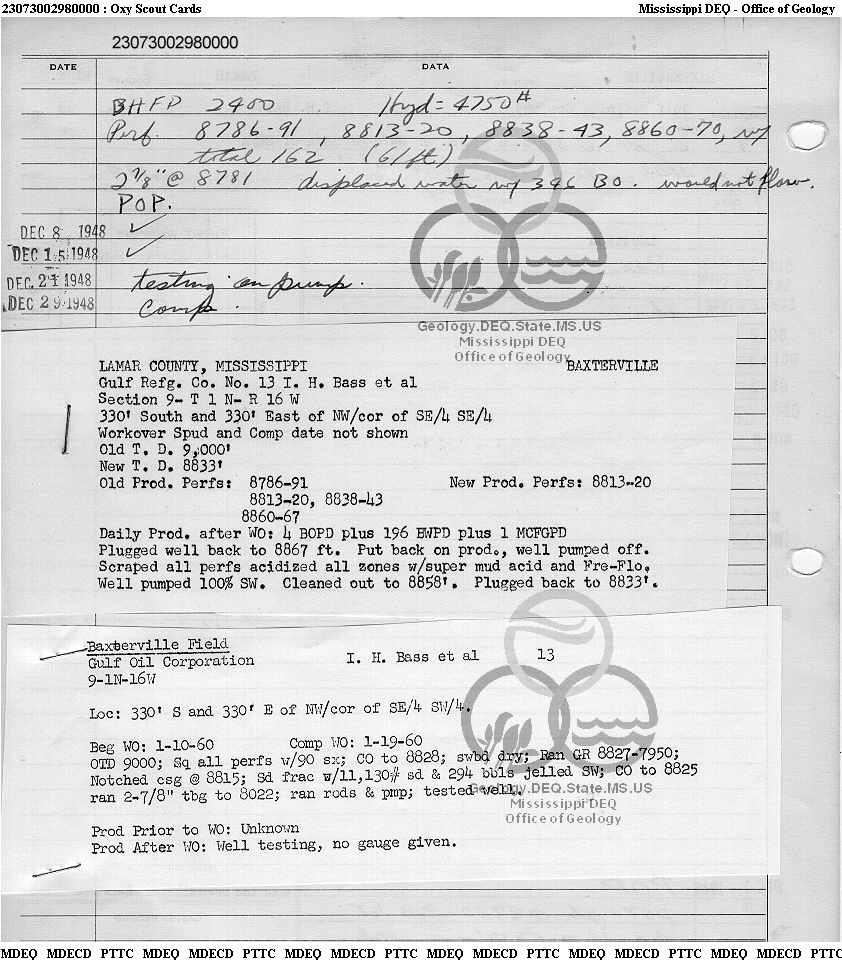 23073002980000 : Oxy Scout Cards Mississippi DEQ - Office of Geology
23073002980000
DATE DATA
BHFP 2400 Hyd = 4750#
Perf. 8786-91, 8813-20, 8838-43, 8860-70, w/
total 162 (6/ft)
2 7/8" @ 8781 displaced water w/ 396 BO. would not flow.
POP.
DEC 8, 1948 ✓
DEC 15 1948 ✓
DEC. 21 1948 testing on pump.
DEC 29 1948 Comp.
Geology.DEQ.State.MS.US
Mississippi DEQ
Office of Geology
LAMAR COUNTY, MISSISSIPPI BAXTERVILLE
Gulf Refg. Co. No. 13 I. H. Bass et al
Section 9- T 1 N- R 16 W
330' South and 330' East of NW/cor of SE/4 SE/4
Workover Spud and Comp date not shown
Old T. D. 9,000'
New T. D. 8833'
Old Prod. Perfs: 8786-91 New Prod. Perfs: 8813-20
8813-20, 8838-43
8860-67
Daily Prod. after WO: 4 BOPD plus 196 BWPD plus 1 MCFGPD
Plugged well back to 8867 ft. Put back on prod., well pumped off.
Scraped all perfs acidized all zones w/super mud acid and Fre-Flo.
Well pumped 100% SW. Cleaned out to 8858'. Plugged back to 8833'.
Baxterville Field
Gulf Oil Corporation I. H. Bass et al 13
9-1N-16W
Loc: 330' S and 330' E of NW/cor of SE/4 SW/4.
Beg WO: 1-10-60 Comp WO: 1-19-60
OTD 9000; Sq all perfs w/90 sx; CO to 8828; swbd dry; Ran GR 8827-7950;
Notched csg @ 8815; Sd frac w/11,130# sd & 294 bbls jelled SW; CO to 8825
ran 2-7/8" tbg to 8022; ran rods & pmp; tested well.
Geology.DEQ.State.MS.US
Mississippi DEQ
Office of Geology
Prod Prior to WO: Unknown
Prod After WO: Well testing, no gauge given.
MDEQ MDECD PTTC MDEQ MDECD PTTC MDEQ MDECD PTTC MDEQ MDECD PTTC MDEQ MDECD PTTC MDEQ MDECD PTTC